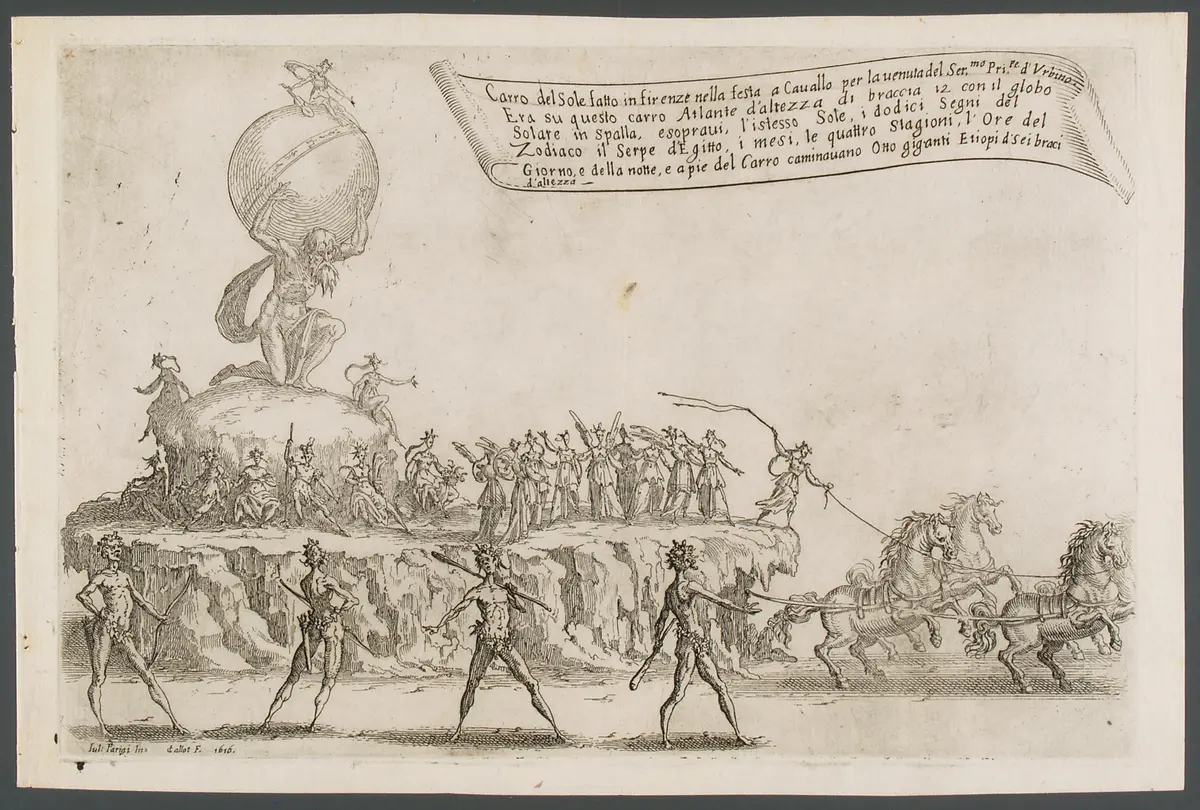 Carro del Sole fatto in firenze nella festa a Cauallo per la uenuta del Ser.mo Pri.pe d'Vrbino
Era su questo carro Atlante d'altezza di braccia 12 con il globo
Solare in spalla, esopraui, l'istesso Sole, i dodici Segni del
Zodiaco il Serpe d'Egitto, i mesi, le quattro Stagioni, l'Ore del
Giorno, e della notte, e a pie del Carro caminauano Otto giganti Etiopi di Sei braci
d'altezza
Iul: Parigi In: Callot F. 1616.